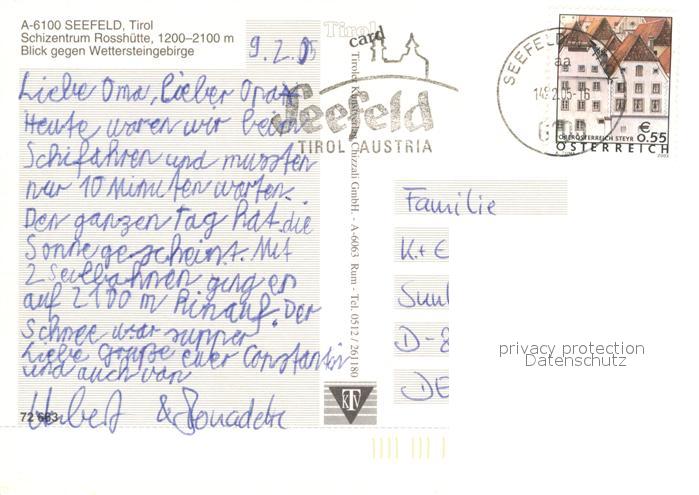 A-6100 SEEFELD, Tirol
Schizentrum Rosshütte, 1200–2100 m
Blick gegen Wettersteingebirge
9.2.05
Liebe Oma, lieber Opa
Heute waren wir beim
Schifahren und mussten
nur 10 Minuten warten.
Den ganzen Tag hat die
Sonne gescheint. Mit
2 Seilbahnen ging es
auf 2100 m hinauf. Der
Schnee war supper.
Liebe grüße euer Constantin
und auch von
&
72 663
Tirol
card
Seefeld
TIROL AUSTRIA
Tiroler Kunstverlag Chizzali GmbH. - A-6063 Rum - Tel. 0512 / 261180
KTV
SEEFELD
OBERÖSTERREICH STEYR
€ 0.55
ÖSTERREICH
2003
Familie
K + E
D-8
DE
privacy protection
Datenschutz